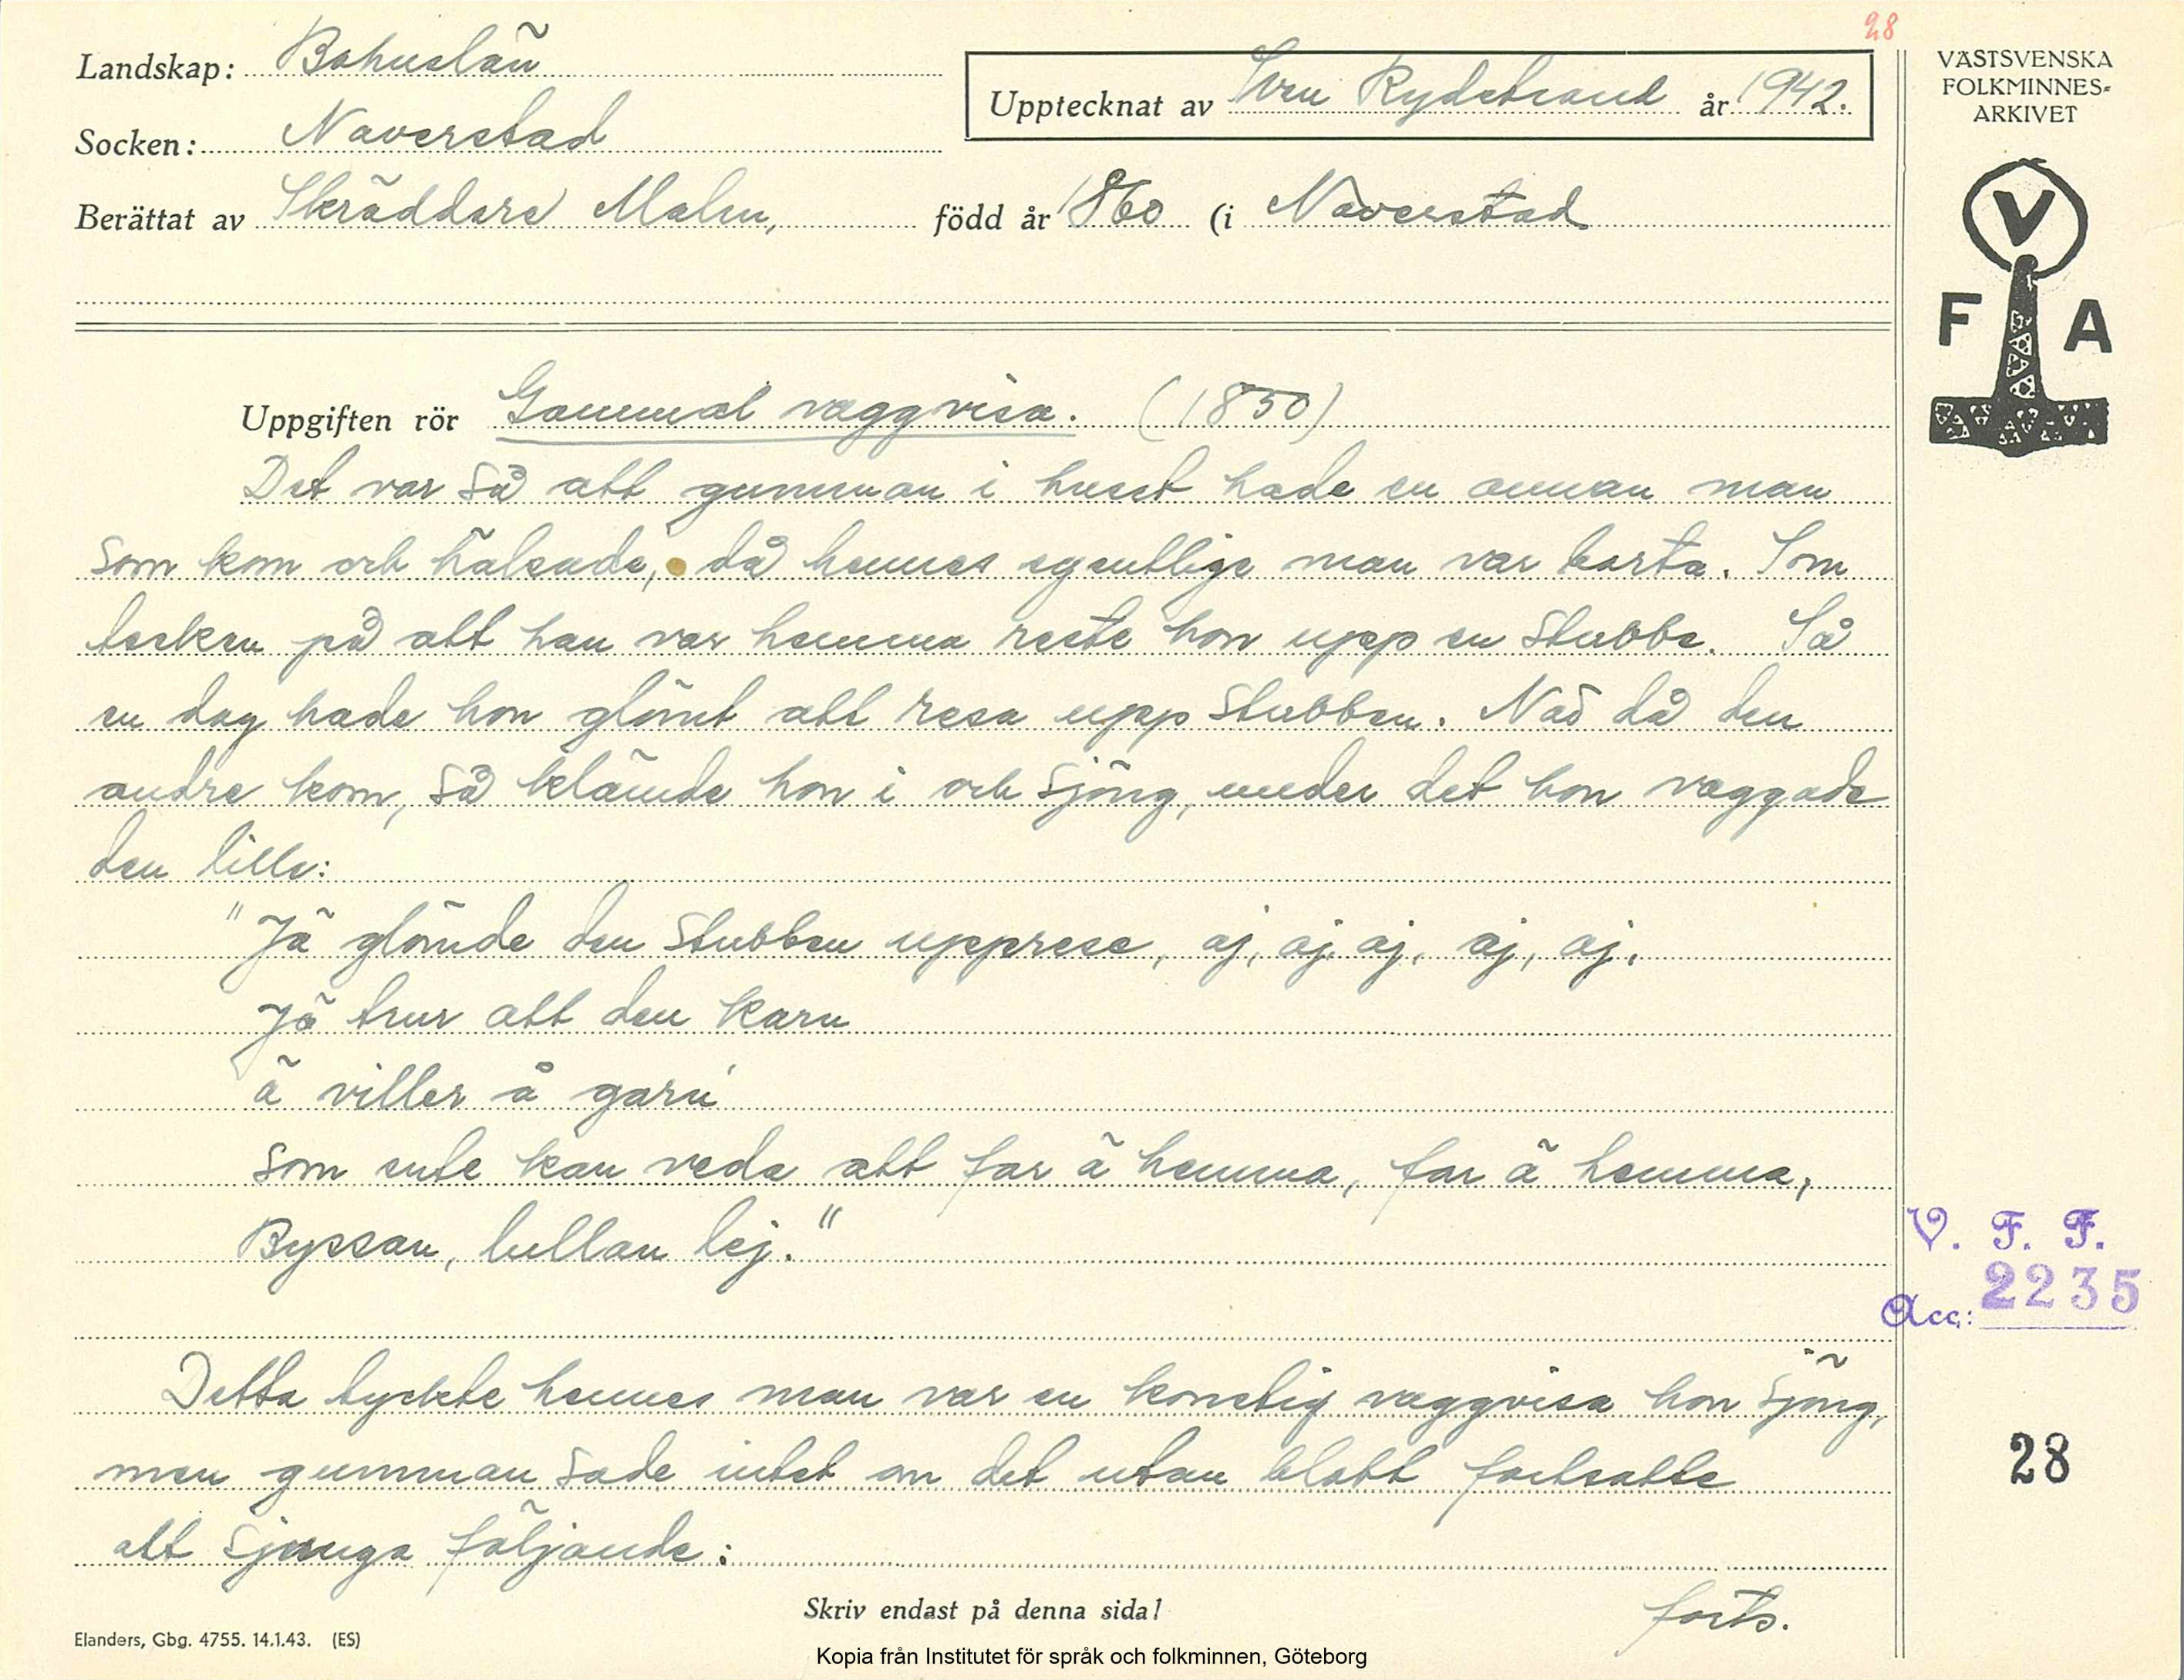 28
Landskap: Bohuslän
Upptecknat av Sven Rydstrand år 1942.
Socken: Naverstad
Berättat av Skräddare Malm, född år 1860 (i Naverstad
VÄSTSVENSKA
FOLKMINNES-
ARKIVET
V
F A
Uppgiften rör Gammal vaggvisa. (1850)
Det var så att gumman i huset hade en annan man
som kom och hälsade, då hennes egentlige man var borta. Som
tecken på att han var hemma reste hon upp en stubbe. Så
en dag hade hon glömt att resa upp stubben. Nåd då den
andre kom, så klämde hon i och sjöng, under det hon vaggade
den lille:
"Jä glömde den stubben upprese, aj, aj, aj, aj, aj,
Jä trur att den karn
ä viller å garn
som ente kan veda att far ä hemma, far ä hemma,
Byssan, lullan lej."
V. F. F.
Acc: 2235
Detta tyckte hennes man var en konstig vaggvisa hon sjöng,
men gumman sade intet om det utan blott fortsatte
att sjunga följande:
28
forts.
Skriv endast på denna sida!
Elanders, Gbg. 4755. 14.1.43. (ES)
Kopia från Institutet för språk och folkminnen, Göteborg